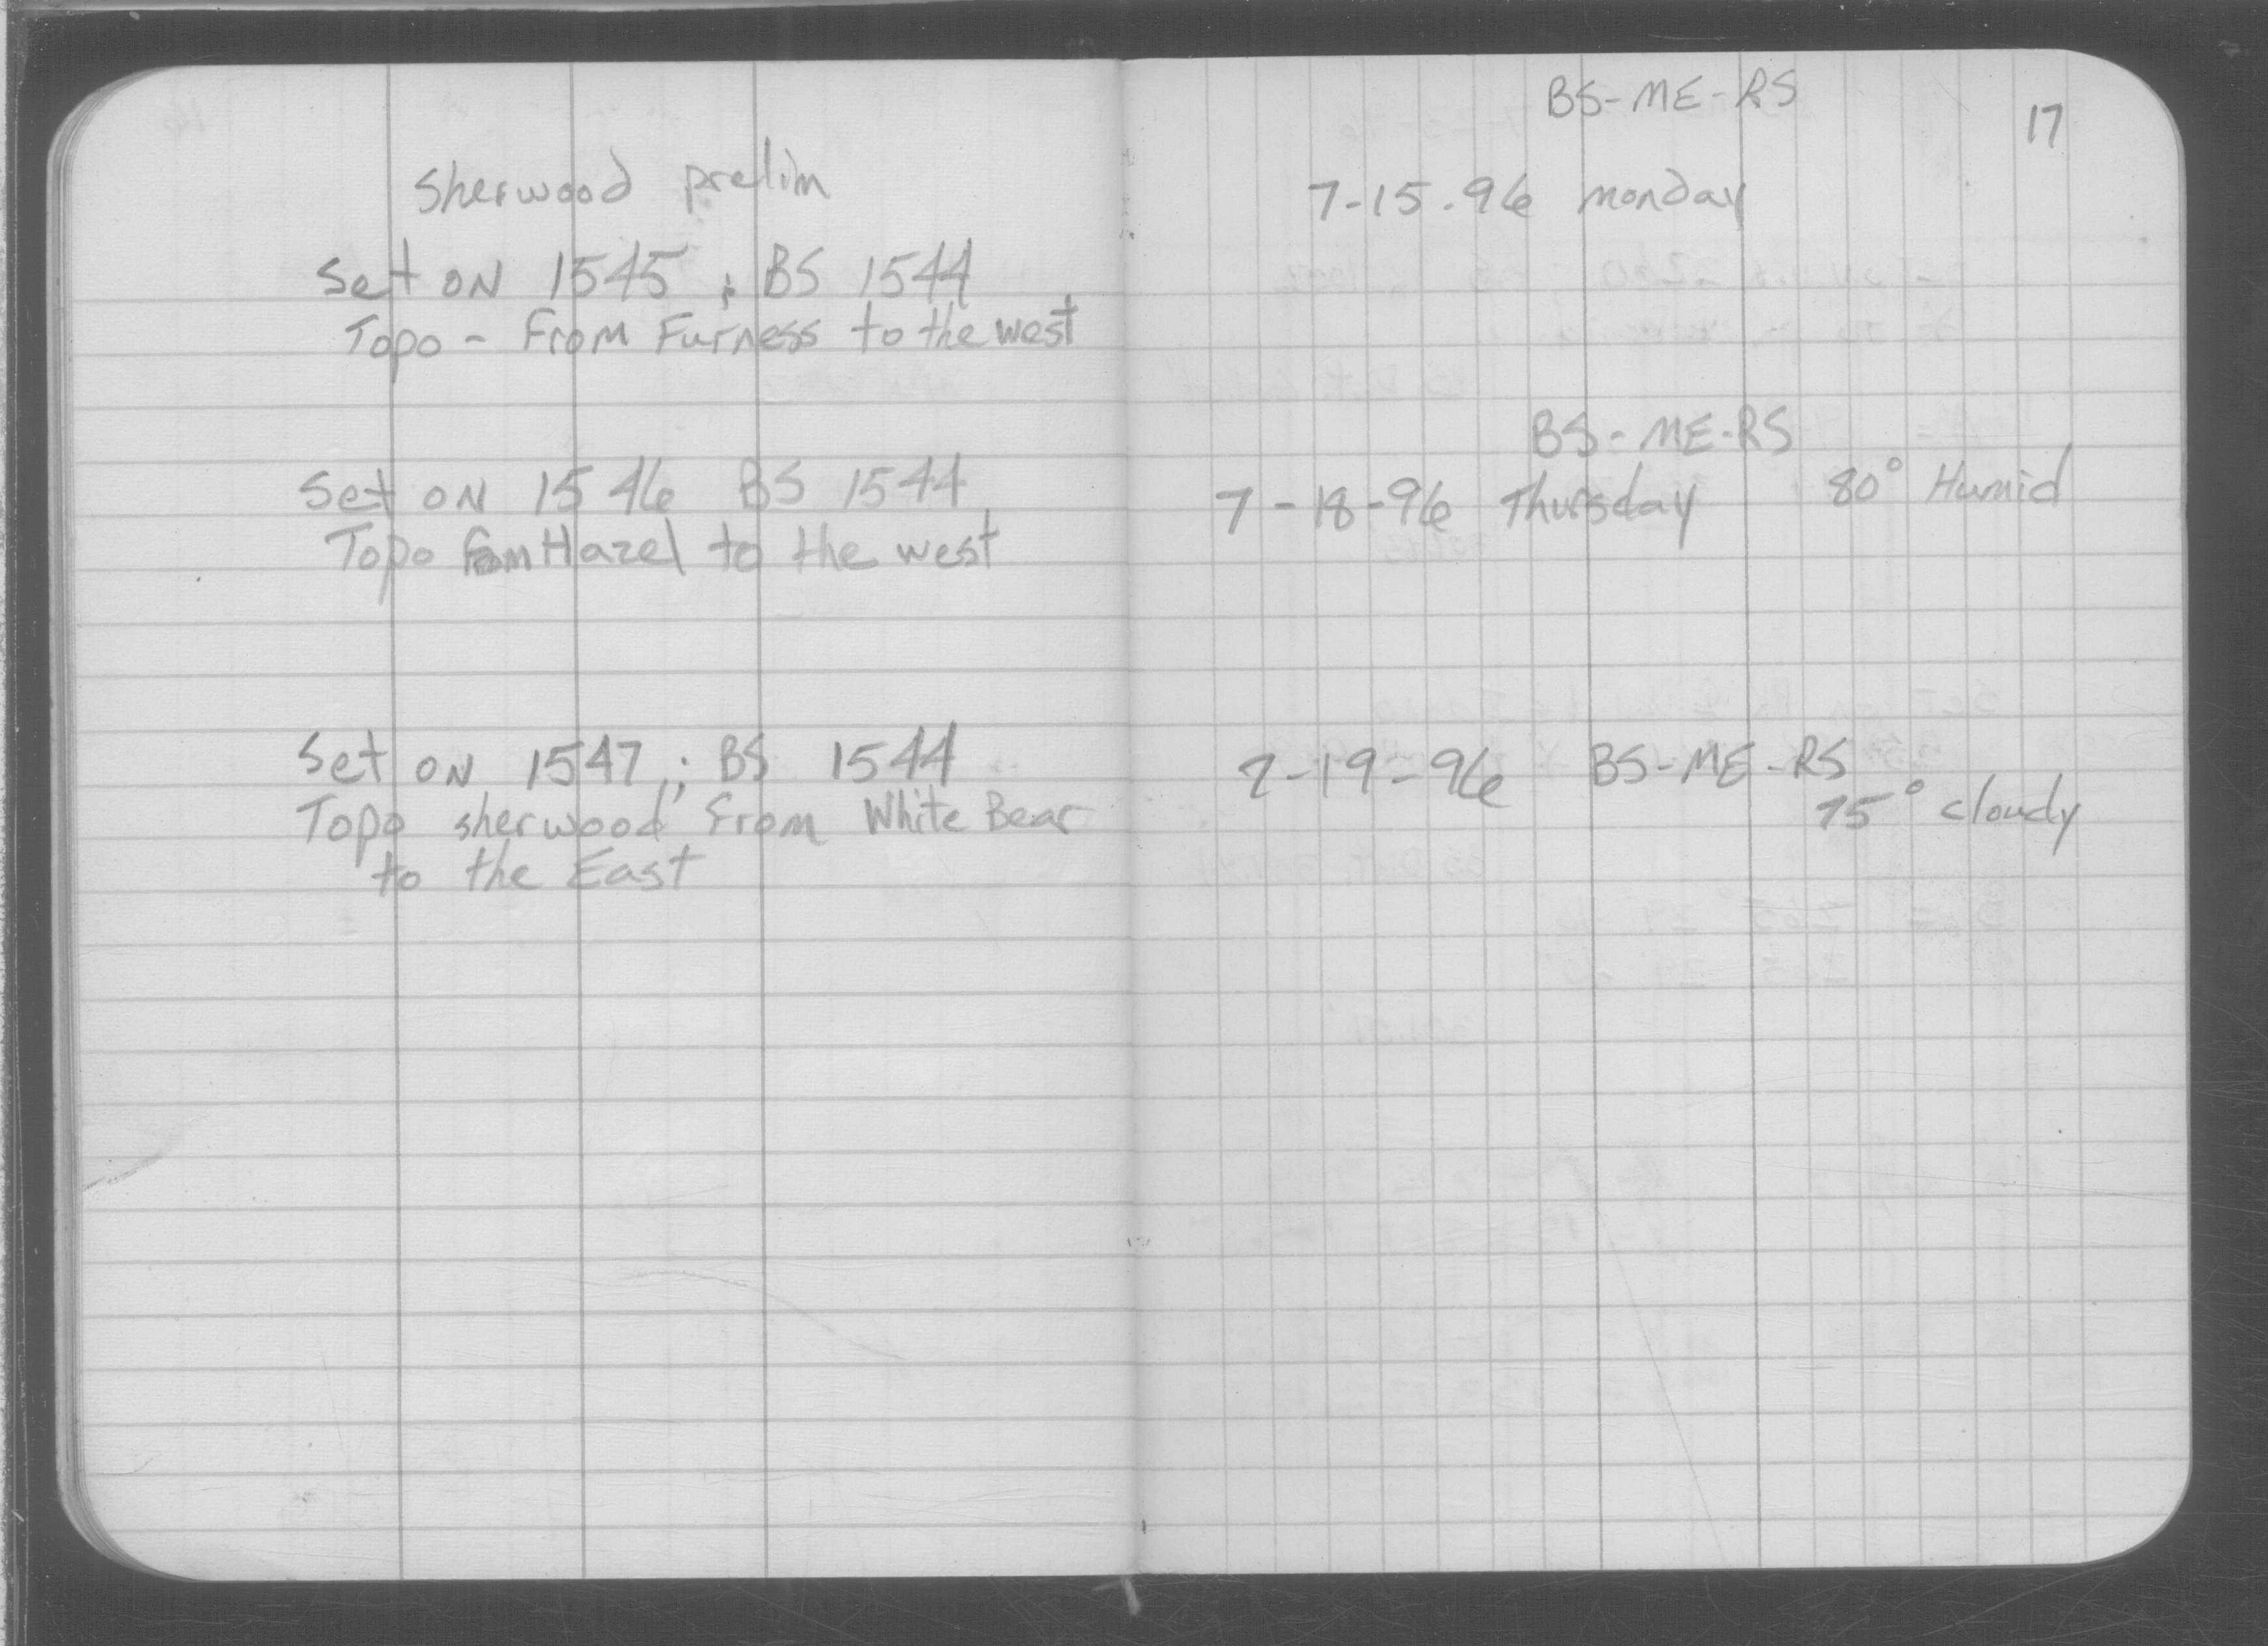 Sherwood prelim
Set ON 1545 ; BS 1544
Topo - From Furness to the west
Set ON 1546 BS 1544
Topo From Hazel to the west
Set ON 1547 ; BS 1544
Topo sherwood from White Bear
to the East
BS-ME-RS
17
7-15-96 monday
BS-ME-RS
7-18-96 Thursday 80° Humid
7-19-96 BS-ME-RS
75° cloudy